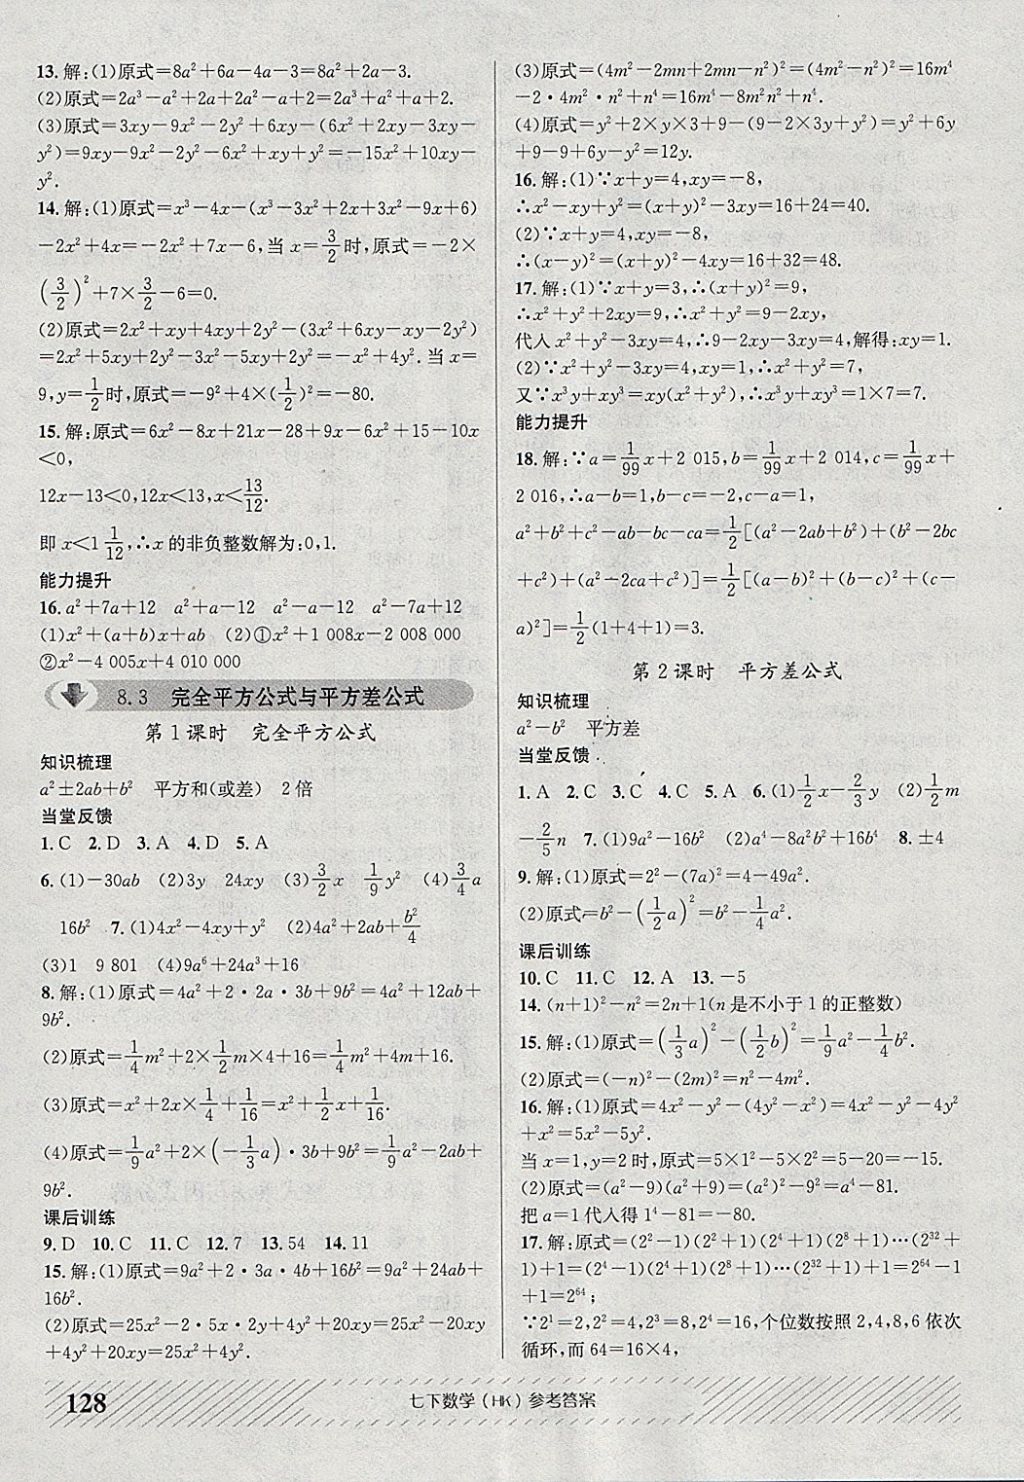 13.解:(1)原式=8a²+6a-4a-3=8a²+2a-3.
(2)原式=2a³-a²+2a+2a²-a+2=2a³+a²+a+2.
(3)原式=3xy-9x²-2y²+6xy-(6x²+2xy-3xy-
y²)=9xy-9x²-2y²-6x²+xy+y²=-15x²+10xy-
y².
14.解:(1)原式=x³-4x-(x³-3x²+2x+3x²-9x+6)
-2x²+4x=-2x²+7x-6,当x=3/2时,原式=-2×
(3/2)²+7×3/2-6=0.
(2)原式=2x²+xy+4xy+2y²-(3x²+6xy-xy-2y²)
=2x²+5xy+2y²-3x²-5xy+2y²=-x²+4y².当x=
9,y=1/2时,原式=-9²+4×(1/2)²=-80.
15.解:原式=6x²-8x+21x-28+9x-6x²+15-10x
<0,
12x-13<0,12x<13,x<13/12.
即x<1 1/12,∴x的非负整数解为:0,1.
能力提升
16.a²+7a+12 a²+a-12 a²-a-12 a²-7a+12
(1)x²+(a+b)x+ab (2)①x²+1 008x-2 008 000
②x²-4 005x+4 010 000
8.3 完全平方公式与平方差公式
第1课时 完全平方公式
知识梳理
a²±2ab+b² 平方和(或差) 2倍
当堂反馈
1.C 2.D 3.A 4.D 5.A
6.(1)-30ab (2)3y 24xy (3)3/2x 1/9y² (4)3/4a
16b² 7.(1)4x²-4xy+y² (2)4a²+2ab+b²/4
(3)1 9 801 (4)9a⁶+24a³+16
8.解:(1)原式=4a²+2·2a·3b+9b²=4a²+12ab+
9b².
(2)原式=1/4m²+2×1/2m×4+16=1/4m²+4m+16.
(3)原式=x²+2x×1/4+1/16=x²+1/2x+1/16.
(4)原式=1/9a²+2×(-1/3a)·3b+9b²=1/9a²-2ab+
9b².
课后训练
9.D 10.C 11.C 12.7 13.54 14.11
15.解:(1)原式=9a²+2·3a·4b+16b²=9a²+24ab+
16b².
(2)原式=25x²-2·5x·2y+4y²=25x²-20xy
+4y²+20xy=25x²+4y².
(3)原式=(4m²-2mn+2mn-n²)²=(4m²-n²)²=16m⁴
-2·4m²·n²+n⁴=16m⁴-8m²n²+n⁴.
(4)原式=y²+2×y×3+9-(9-2×3y+y²)=y²+6y
+9-9+6y-y²=12y.
16.解:(1)∵x+y=4,xy=-8,
∴x²-xy+y²=(x+y)²-3xy=16+24=40.
(2)∵x+y=4,xy=-8,
∴(x-y)²=(x+y)²-4xy=16+32=48.
17.解:(1)∵x+y=3,∴(x+y)²=9,
∴x²+y²+2xy=9,∴x²+y²=9-2xy,
代入x²+y²-3xy=4,∴9-2xy-3xy=4,解得:xy=1.
(2)∵x²+y²-3xy=4,xy=1,∴x²+y²=7,
又∵x³y+xy³=xy(x²+y²),∴x³y+xy³=1×7=7.
能力提升
18.解:∵a=1/99x+2 015,b=1/99x+2 014,c=1/99x+
2 016,∴a-b=1,b-c=-2,c-a=1,
a²+b²+c²-ab-bc-ca=1/2[(a²-2ab+b²)+(b²-2bc
+c²)+(a²-2ca+c²)]=1/2[(a-b)²+(b-c)²+(c-
a)²]=1/2(1+4+1)=3.
第2课时 平方差公式
知识梳理
a²-b² 平方差
当堂反馈
1.A 2.C 3.C 4.C 5.A 6.(1)1/2x-2/3y (2)1/2m
-2/5n 7.(1)9a²-16b² (2)a⁴-8a²b²+16b⁴ 8.±4
9.解:(1)原式=2²-(7a)²=4-49a².
(2)原式=b²-(1/2a)²=b²-1/4a².
课后训练
10.C 11.C 12.A 13.-5
14.(n+1)²-n²=2n+1(n是不小于1的正整数)
15.解:(1)原式=(1/3a)²-(1/2b)²=1/9a²-1/4b².
(2)原式=(-n)²-(2m)²=n²-4m².
16.解:(1)原式=4x²-y²-(4y²-x²)=4x²-y²-4y²
+x²=5x²-5y².
当x=1,y=2时,原式=5×1²-5×2²=5-20=-15.
(2)原式=(a²-9)(a²+9)=(a²)²-9²=a⁴-81.
把a=1代入得1⁴-81=-80.
17.解:原式=(2²-1)(2²+1)(2⁴+1)(2⁸+1)…(2³²+
1)+1=(2⁴-1)(2⁴+1)(2⁸+1)…(2³²+1)+1=2⁶⁴-1
+1=2⁶⁴;
∵2¹=2,2²=4,2³=8,2⁴=16,个位数按照2,4,8,6依次
循环,而64=16×4,
128
七下数学(HK)参考答案